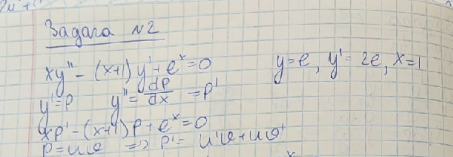 Задача №2
xy'' - (x+1)y' + e^x = 0    y=e, y'=2e, x=1
y'=p    y'' = dp/dx = p'
xp' - (x+1)p + e^x = 0
p=uv => p' = u'v+uv'